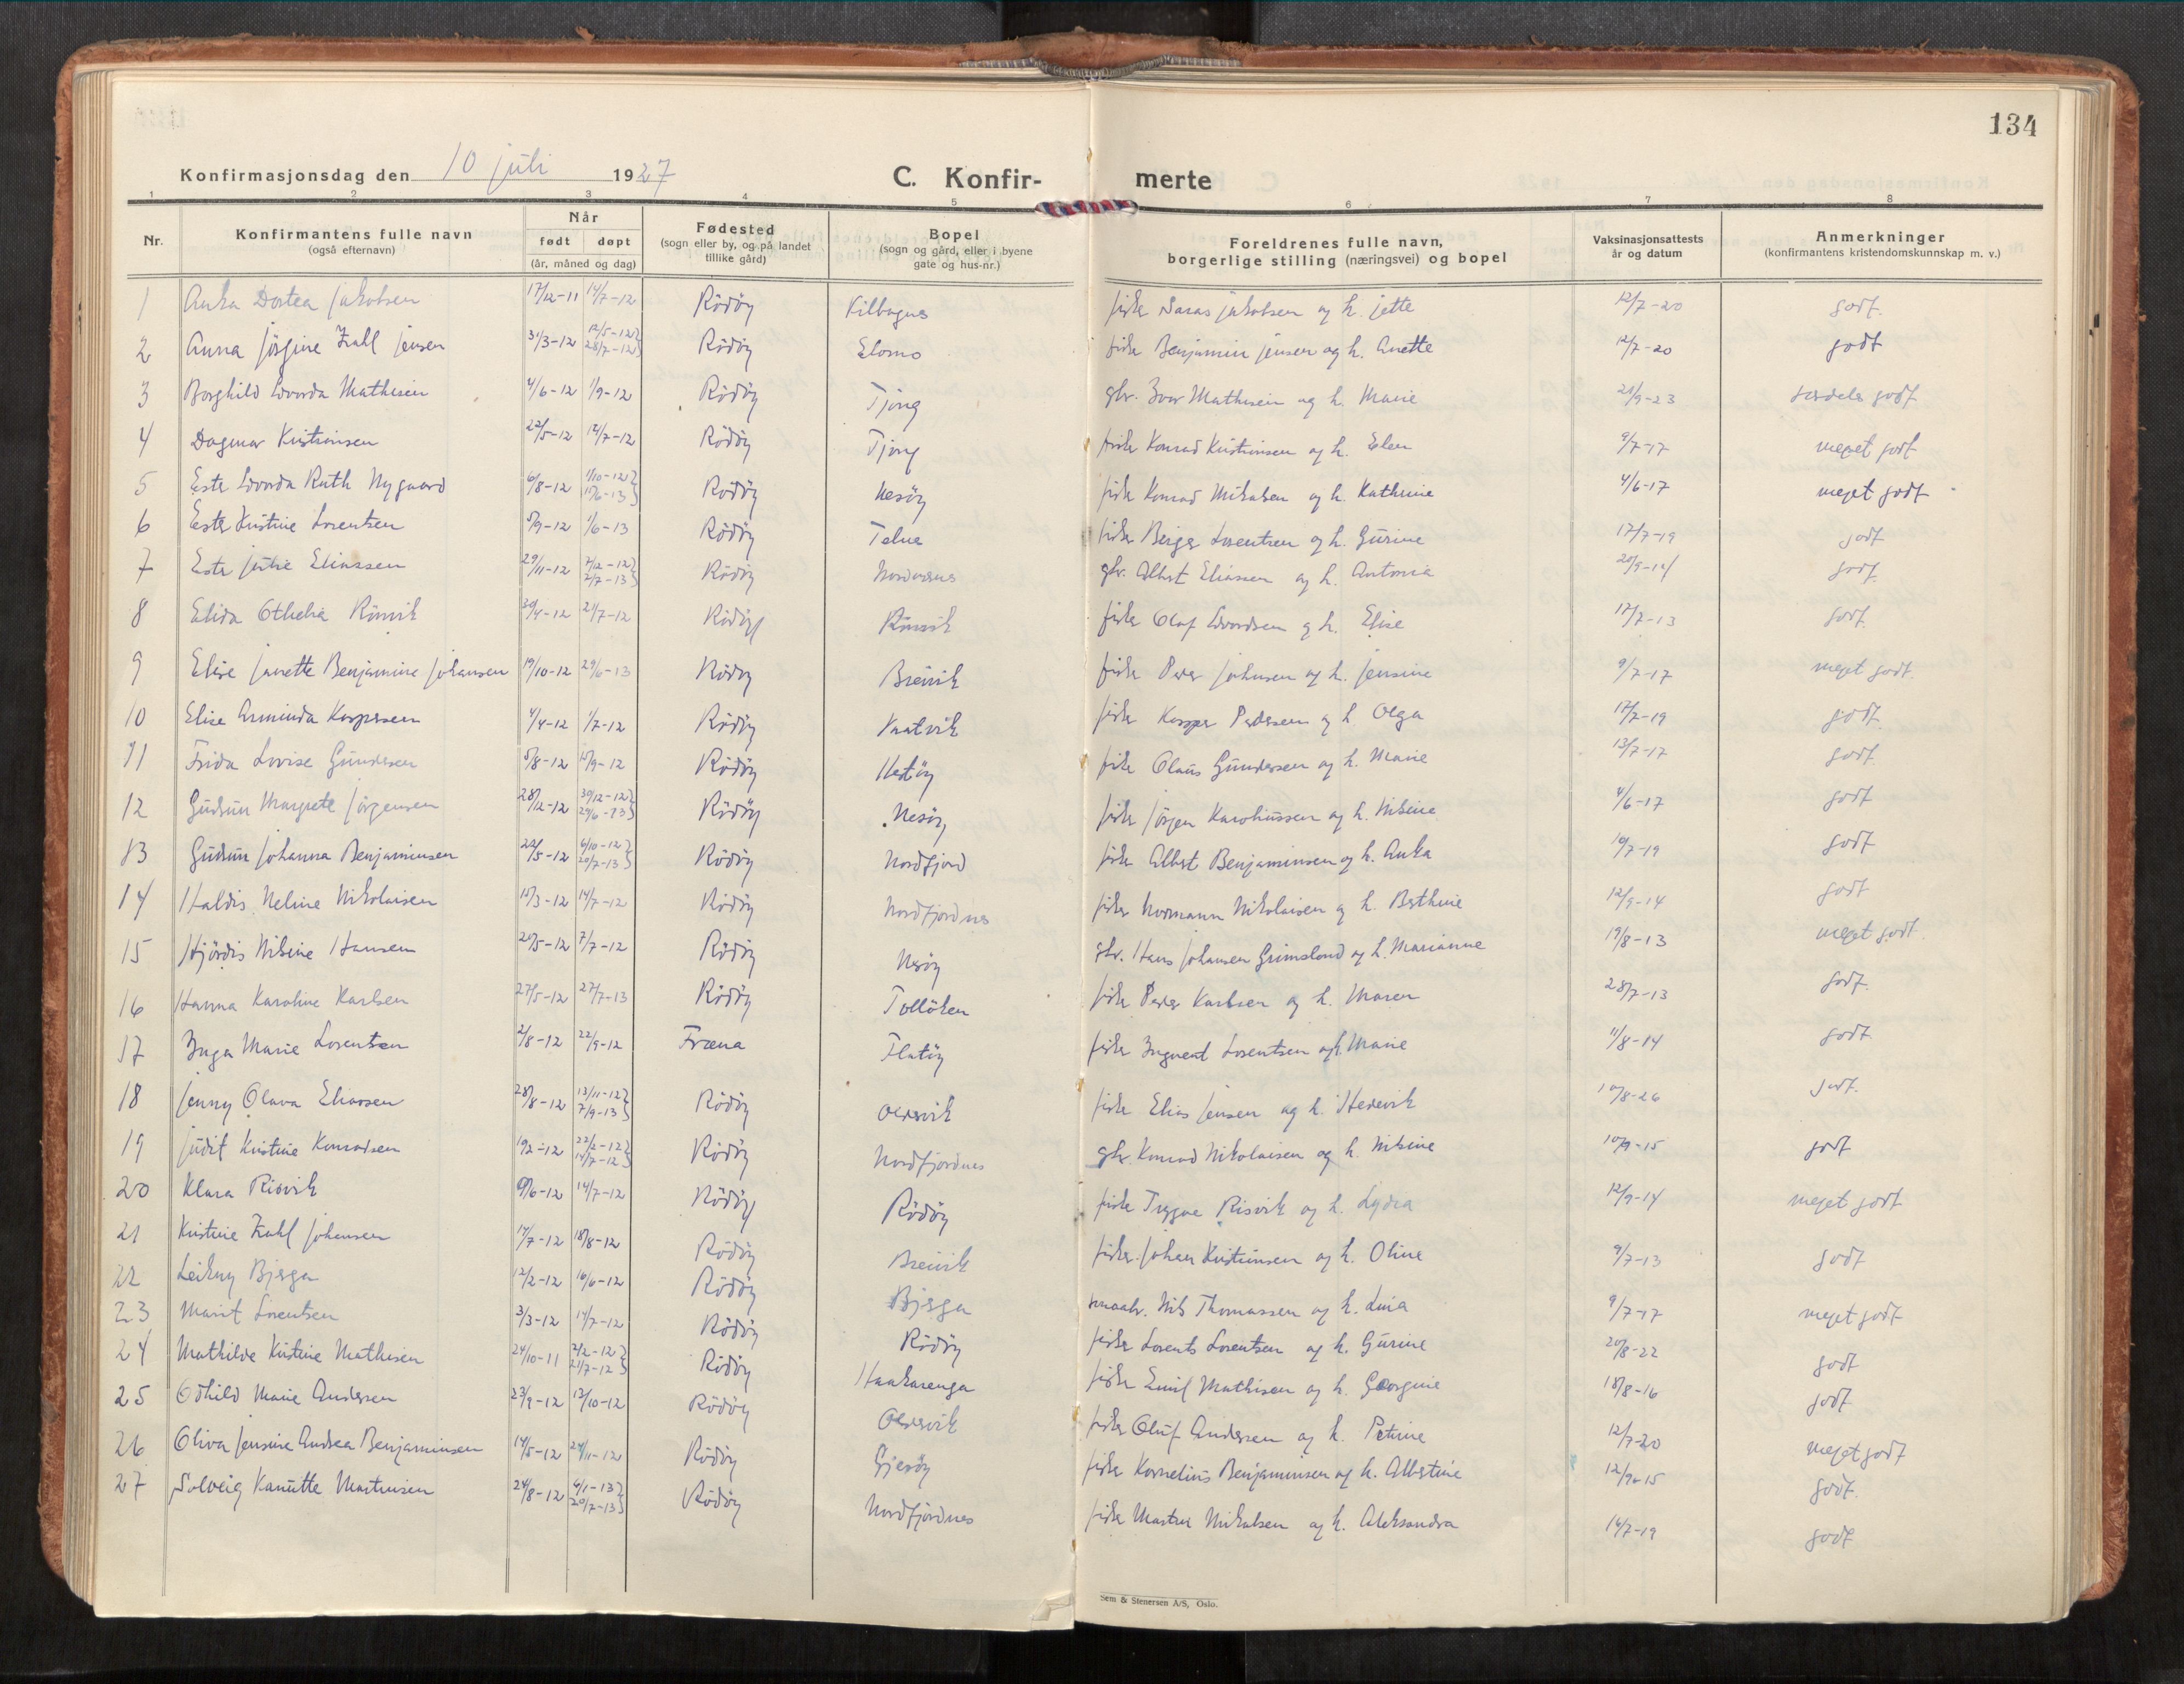 134
Konfirmasjonsdag den 10 juli 1927 C. Konfir- merte
1 2 3 4 5 6 7 8
Nr. Konfirmantens fulle navn (også efternavn) Når født døpt (år, måned og dag) Fødested (sogn eller by, og på landet tillike gård) Bopel (sogn og gård, eller i byene gate og hus-nr.) Foreldrenes fulle navn, borgerlige stilling (næringsvei) og bopel Vaksinasjonsattests år og datum Anmerkninger (konfirmantens kristendomskunnskap m. v.)
1 Anka Dortea Jakobsen 17/12-11 14/7-12 Rödöy Kilbognes fisker Jakobsen og h. Jette 12/7-20 godt.
2 Anna Jörgine Zahl Jensen 31/3-12 12/5-12 28/7-12 Rödöy Slomo fisker Benjamin Jensen og h. Anette 12/7-20 godt
3 Borghild Edvarda Mathisen 4/6-12 1/9-12 Rödöy Tjong gbr. Ivar Mathisen og h. Marie 21/9-23 særdeles godt
4 Dagmar Kristensen 22/5-12 14/7-12 Rödöy Tjong fisker Konrad Kristensen og h. Elen 9/7-17 meget godt
5 Ester Edvarda Ruth Nygaard 6/8-12 1/10-12 15/6-13 Rödöy Nesöy fisker Konrad Mikalsen og h. Kathrine 4/6-17 meget godt
6 Ester Kristine Lorentsen 5/9-12 1/6-13 Rödöy Telne fisker Berger Lorentsen og h. Gurine 17/7-19 godt
7 Ester Jutie Eliassen 29/11-12 7/12-12 2/7-13 Rödöy Nordnesnes gbr. Albert Eliassen og h. Antonia 20/9-14 godt.
8 Elida Othelia Rönvik 30/4-12 21/7-12 Rödöy Rönvik fisker Olaf Edvardsen og h. Elise 17/7-13 godt.
9 Elise Janette Benjamine Johansen 19/10-12 29/6-13 Rödöy Breivik fisker Peder Johnsen og h. Jensine 9/7-17 meget godt.
10 Elise Arminda Kaspersen 4/4-12 1/7-12 Rödöy Kaatvik fisker Kasper Pedersen og h. Olga 17/7-19 godt.
11 Frida Lovise Gundersen 5/8-12 15/9-12 Rödöy Hestöy fisker Olaus Gundersen og h. Marie 13/7-17 godt
12 Gudrun Margrete Jörgensen 28/12-12 30/12-12 24/6-13 Rödöy Nesöy fisker Jörgen Karoliussen og h. Nilsine 4/6-17 godt
13 Gudrun Johanna Benjaminsen 22/5-12 6/10-12 20/7-13 Rödöy Nordfjord fisker Albert Benjaminsen og h. Anka 10/7-19 godt
14 Haldis Neline Nikolaisen 15/3-12 14/7-12 Rödöy Nordfjordnes fisker Normann Nikolaisen og h. Berthine 12/9-14 godt
15 Hjördis Nilsine Hansen 20/5-12 7/7-12 Rödöy Nesöy gbr. Hans Johansen Grimsland og h. Marianne 19/8-13 meget godt.
16 Hanna Karoline Karlsen 27/5-12 27/7-13 Rödöy Tollöken fisker Peder Karlsen og h. Maren 28/7-13 godt.
17 Inga Marie Lorentsen 2/8-12 22/9-12 Fræna Flatöy fisker Ingvart Lorentsen og h. Marie 11/8-14 godt.
18 Jenny Olava Eliassen 28/8-12 13/11-12 7/9-13 Rödöy Oldervik fisker Elias Jensen og h. Hedevik 10/8-26 godt.
19 Judit Kristine Konradsen 19/2-12 22/2-12 14/7-12 Rödöy Nordfjordnes gbr. Konrad Nikolaisen og h. Nilsine 10/9-15 godt
20 Klara Risvik 9/6-12 14/7-12 Rödöy Rödöy fisker Trygve Risvik og h. Lydia 12/9-14 meget godt
21 Kristine Zahl Johansen 14/7-12 18/8-12 Rödöy Breivik fisker Johan Kristensen og h. Oline 9/7-13 godt
22 Leikny Bjerga 12/2-12 16/6-12 Rödöy Bjerga smaabr. Nils Thomassen og h. Lina 9/7-17 meget godt
23 Marit Lorentsen 3/3-12 14/7-12 Rödöy Rödöy fisker Lorents Lorentsen og h. Gurine 20/8-22 godt
24 Mathilde Kristine Mathisen 24/10-11 2/2-12 21/7-12 Rödöy Haakarenga fisker Emil Mathisen og h. Georgine 18/8-16 godt
25 Odhild Marie Andersen 23/9-12 13/10-12 Rödöy Oldervik fisker Oluf Andersen og h. Petrine 12/7-20 meget godt
26 Oliva Jensine Andrea Benjaminsen 14/5-12 24/11-12 Rödöy Gjesöy fisker Kornelius Benjaminsen og h. Albertine 12/9-15 godt.
27 Solveig Kanutte Martinsen 24/8-12 6/1-13 20/7-13 Rödöy Nordfjordnes fisker Martin Mikalsen og h. Aleksandra 14/7-19 godt
Sem & Stenersen A/S, Oslo.